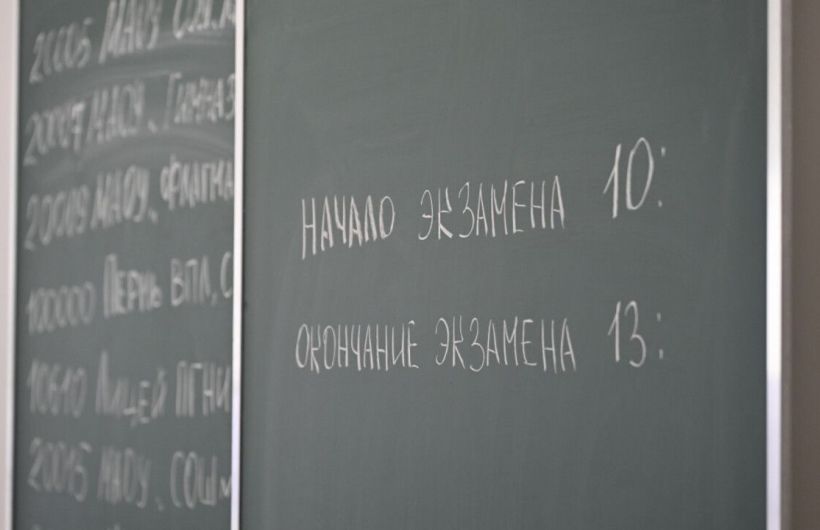 20005 МАОУ
20007 МАОУ, ГИМНАЗ
20019 МАОУ, ФЛАГМА
100000 ПЕРМЬ ВПЛ, С
10610 ЛИЦЕЙ ПГНИ
20015 МАОУ, СОШ
НАЧАЛО ЭКЗАМЕНА 10:
ОКОНЧАНИЕ ЭКЗАМЕНА 13: